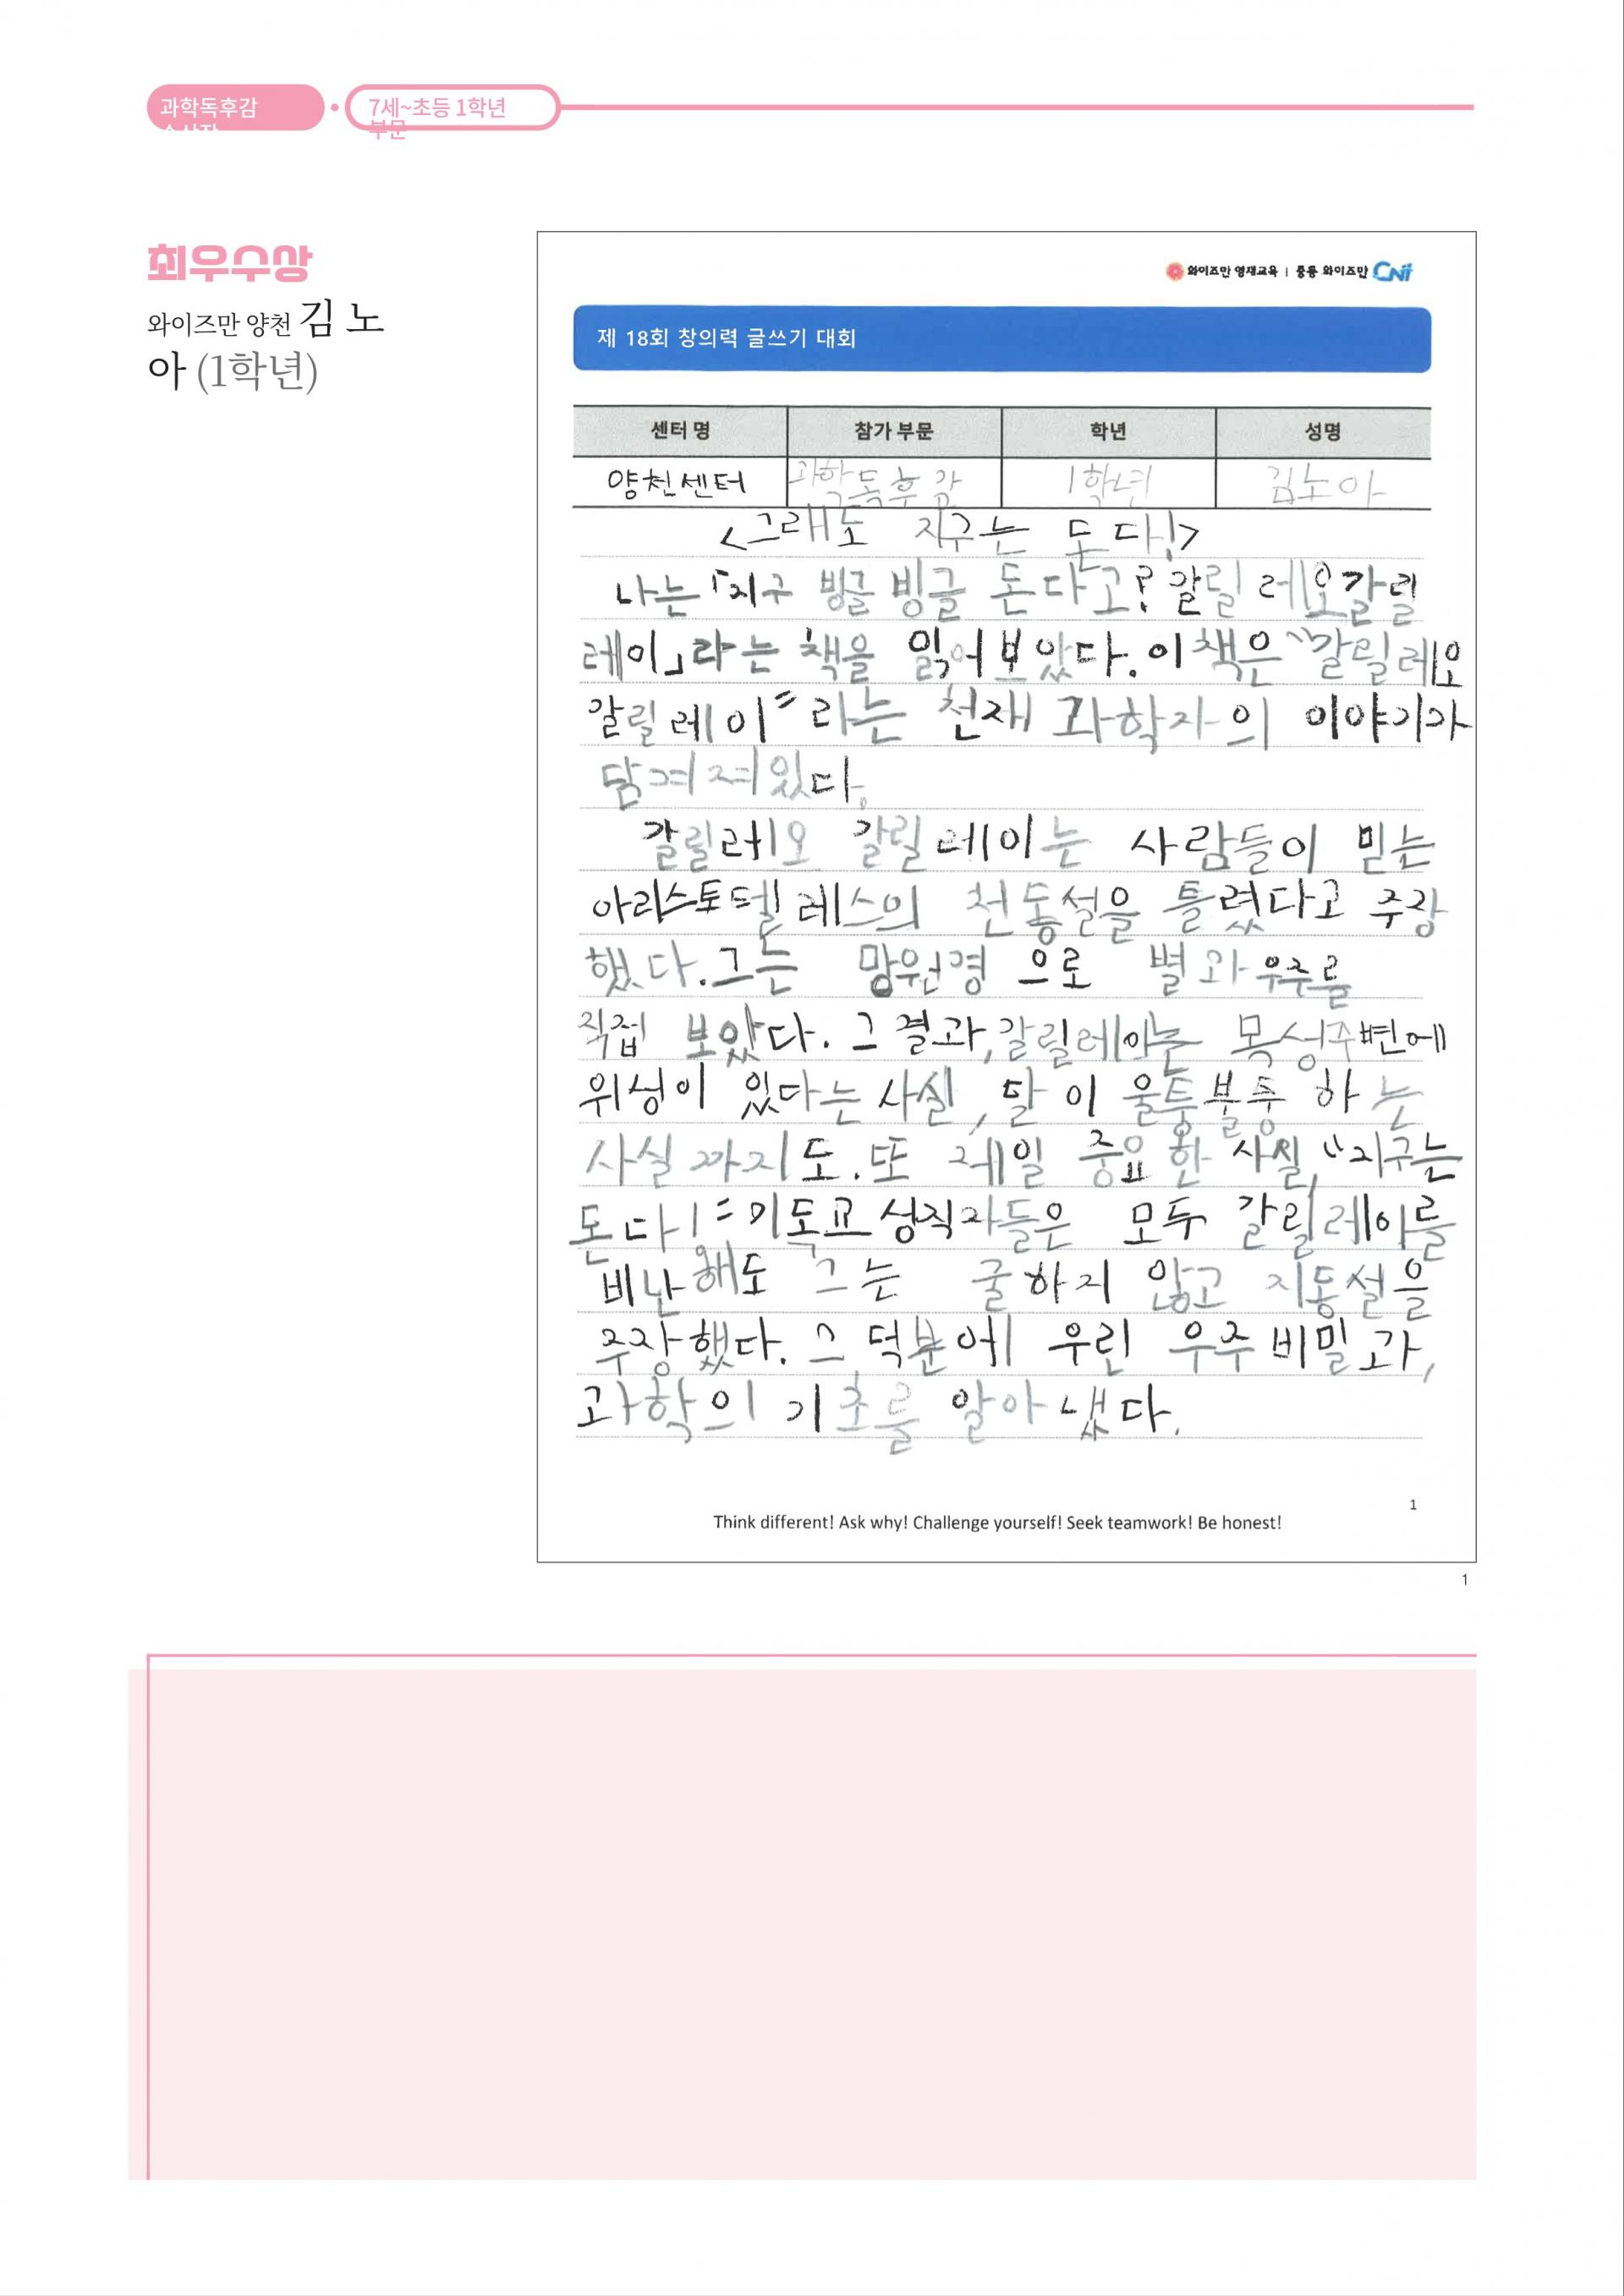 과학독후감
7세~초등 1학년
부문
최우수상
와이즈만 양천 김 노
아 (1학년)
와이즈만 영재교육 | 중등 와이즈만 CNi
제 18회 창의력 글쓰기 대회
센터 명 참가 부문 학년 성명
양천센터 과학독후감 1학년 김노아
<그래도 지구는 돈다!>
나는 「지구 빙글빙글 돈다고? 갈릴레오갈릴
레이」라는 책을 읽어보았다. 이 책은 "갈릴레오
갈릴레이"라는 천재 과학자의 이야기가
담겨져있다.
갈릴레오 갈릴레이는 사람들이 믿는
아리스토텔레스의 천동설을 틀렸다고 주장
했다. 그는 망원경으로 별과 우주를
직접 보았다. 그 결과, 갈릴레이는 목성주변에
위성이 있다는 사실, 달이 울퉁불퉁 하는
사실까지도. 또 제일 중요한 사실, "지구는
돈다!" 기독교 성직자들은 모두 갈릴레이를
비난해도 그는 굴하지 않고 지동설을
주장했다. 그 덕분에 우린 우주 비밀과,
과학의 기초를 알아냈다.
1
Think different! Ask why! Challenge yourself! Seek teamwork! Be honest!
1